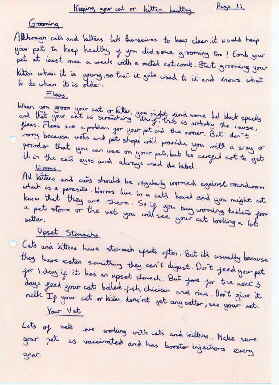 Keeping your cat or kitten healthy Page 11
Grooming
Although cats and kittens lick themselves to keep clean it would help
your pet to keep healthy if you did some grooming too! Comb your
pet at least once a week with a metal comb. Start grooming your
kitten when it is young, so that it gets used to it and knows what
to do when it is older.
Fleas
When you groom your cat or kitten, you might find some black specks
and that your cat is scratching a lot, this is probably the cause,
fleas. Fleas are a problem for your pet and the owner. But don't
worry because vets and pet shops will provide you with a spray or
powder that you can use on your pet, but be careful not to get
it in the cat's eyes and always read the label.
Worms
All kittens and cats should be regularly wormed against roundworm
which is a parasite. Worms live in a cat's bowel and you might not
know that they are there. So if you buy worming tablets from
a pet store or the vet you will see your cat looking a lot
better.
Upset Stomachs
Cats and kittens have stomach upsets often. But it's usually because
they have eaten something they can't digest. Don't feed your pet
for 1 day if it has an upset stomach. But for the next 3
days feed your cat boiled fish, chicken and rice. Don't give it
milk. If your cat or kitten doesn't get any better, see your vet.
Your Vet
Lots of vets are working with cats and kittens. Make sure
your pet is vaccinated and has booster injections every
year